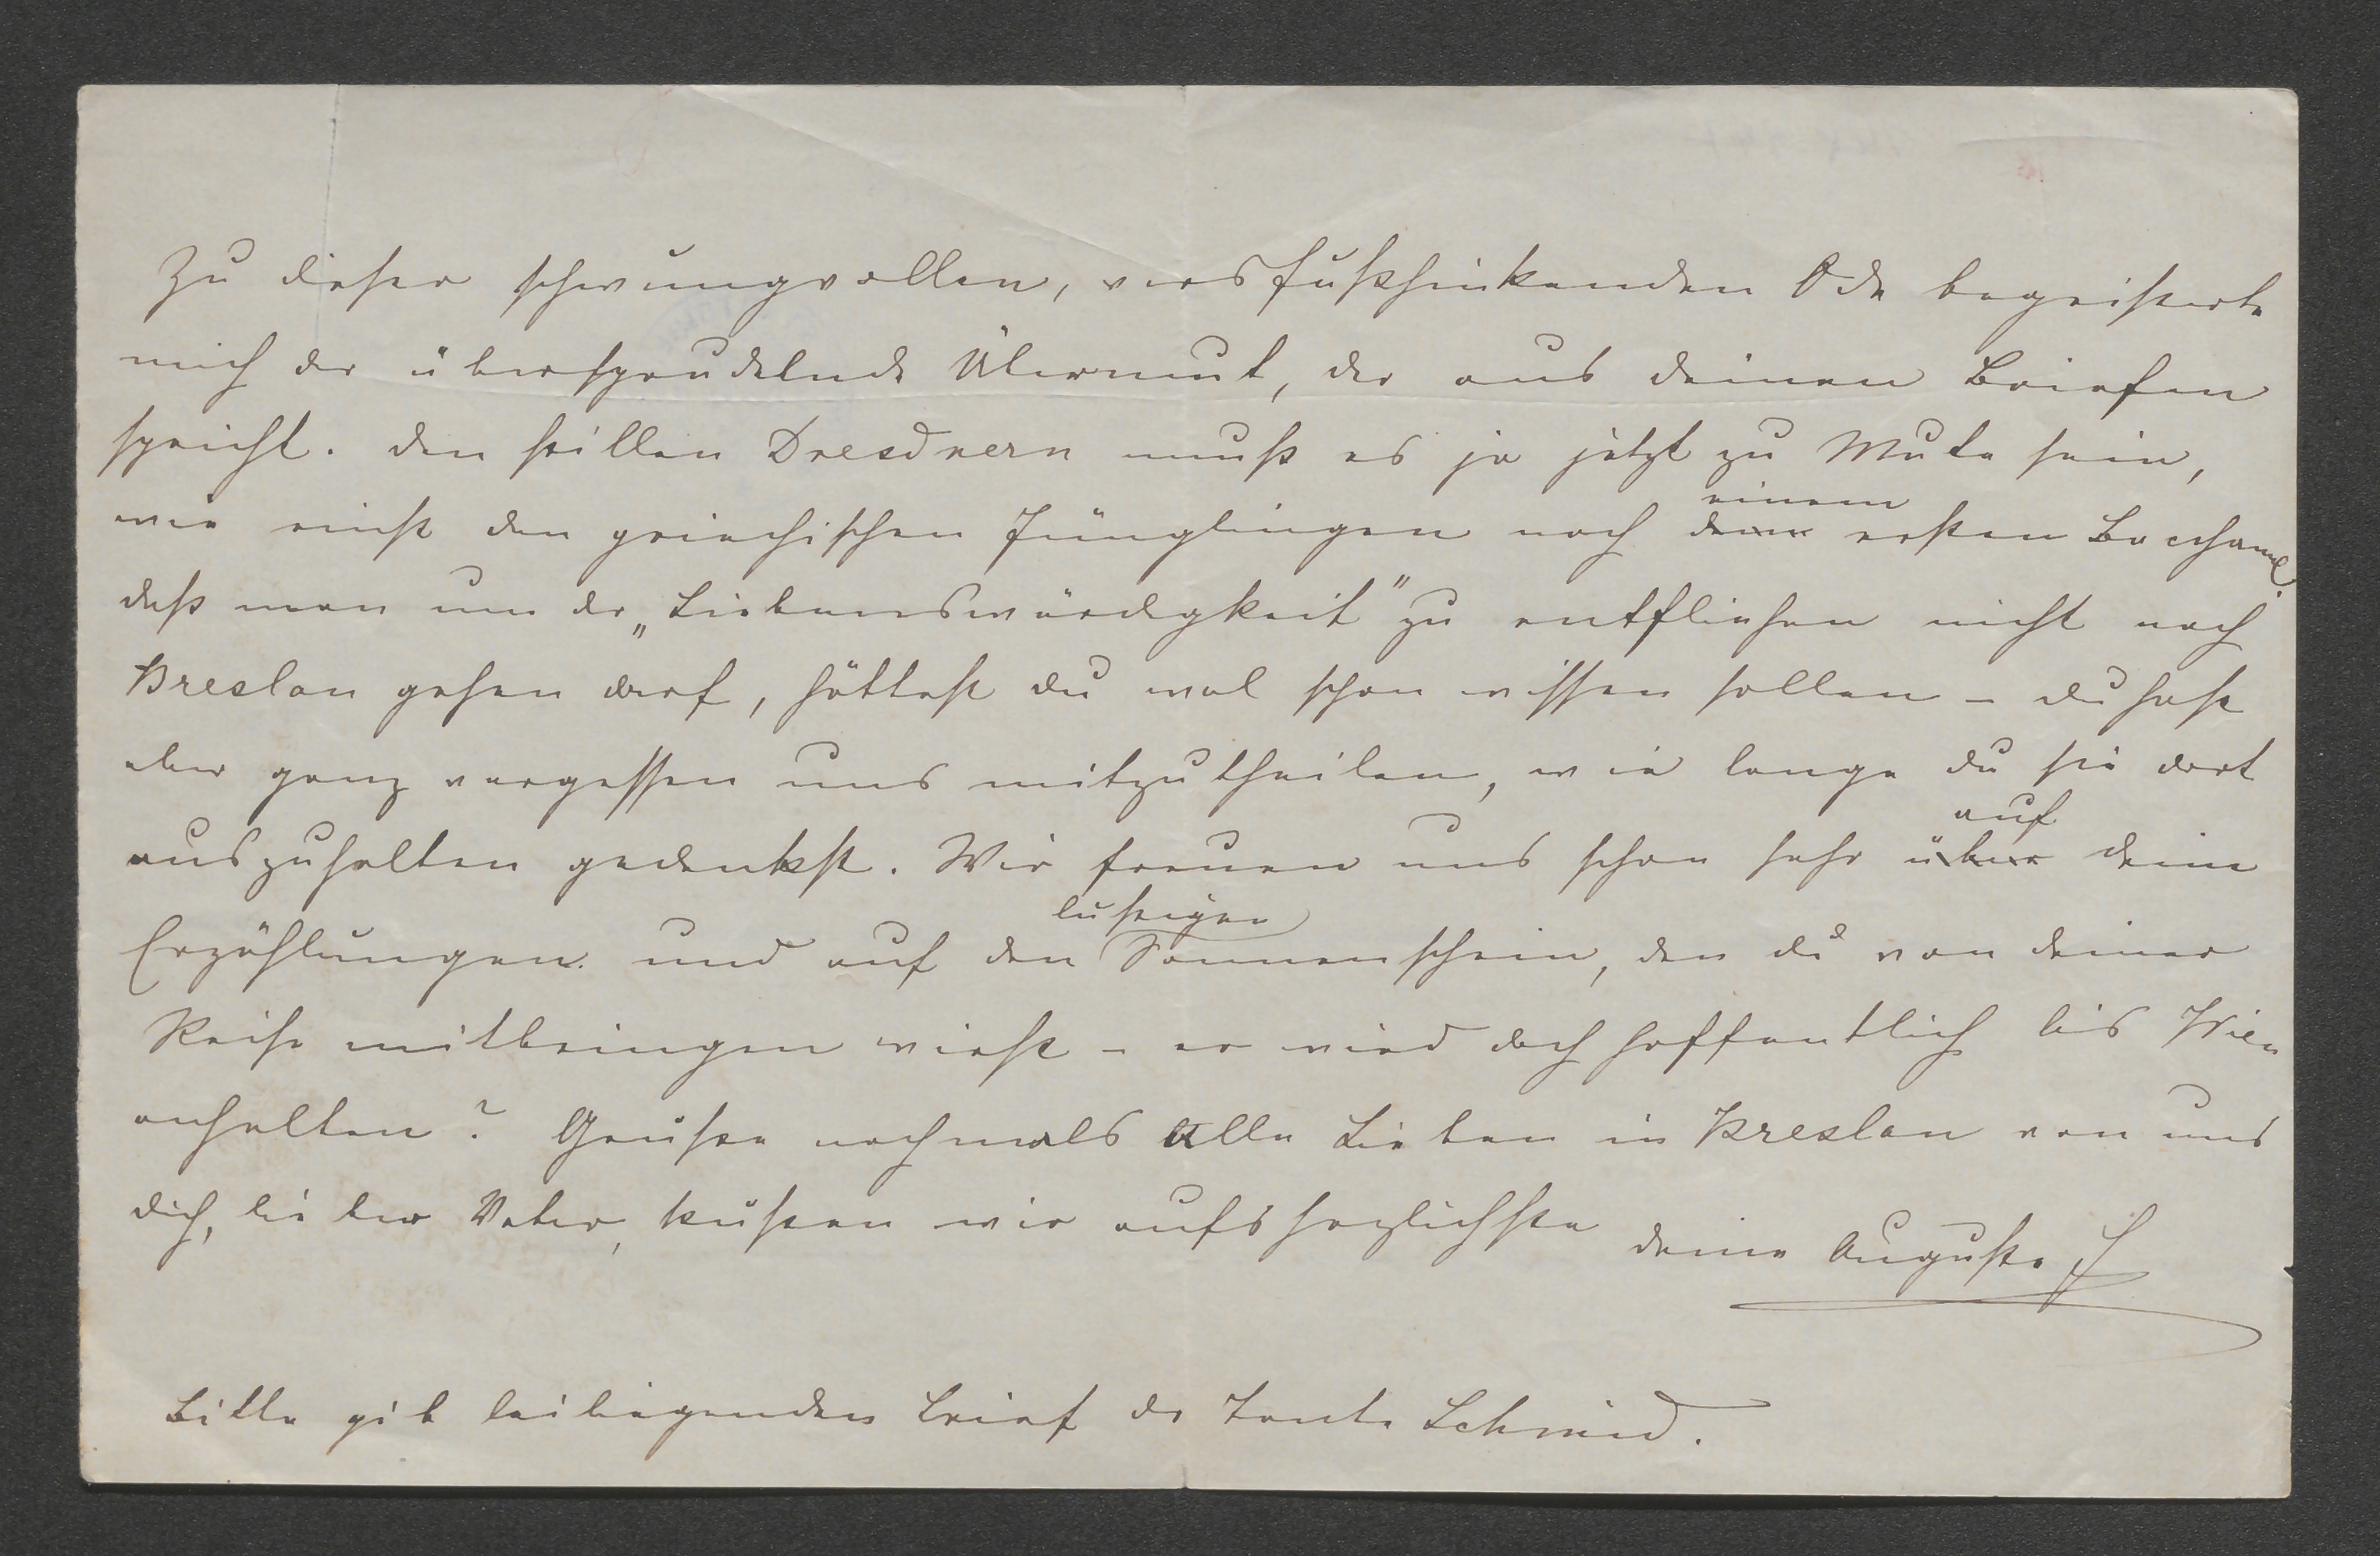 Zu dieser schwungvollen, versfußhinkenden Ode begeisterte
mich der übersprudelnde Übermut, der aus deinen Briefen
spricht. Den stillen Dresdnern muß es ja jetzt zu Mute sein,
wie einst den griechischen Jünglingen nach dem einem ersten Bacchanal.
daß man um der „Liebenswürdigkeit" zu entfliehen nicht nach
Breslau gehen darf, hättest du wol schon wissen sollen – du hast
aber ganz vergessen uns mitzutheilen, wie lange du sie dort
auszuhalten gedenkst. Wir freuen uns schon sehr über auf deine
Erzählungen. und auf den lustigen Sonnenschein, den du von deiner
Reise mitbringen wirst – er wird doch hoffentlich bis Wien
anhalten? Grüße nochmals alle Lieben in Breslau von uns
dich, lieber Vater, küssen wir aufs herzlichste deine Auguste
Bitte gib beiliegenden Brief der Tante Schmid.